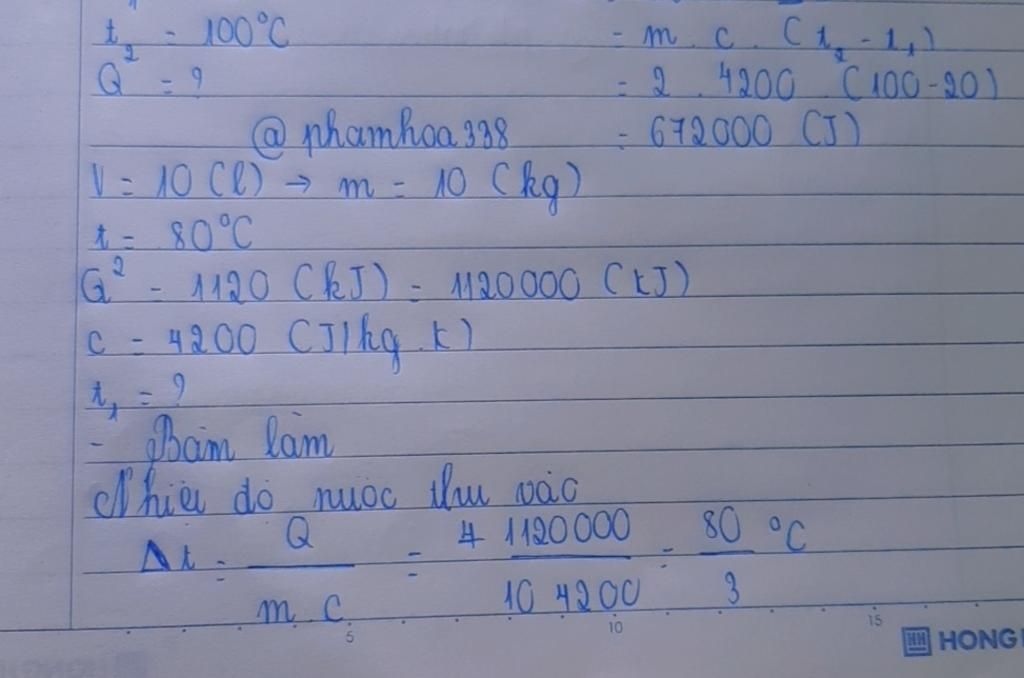 t₂ = 100°C = m . c . (t₂ - t₁)
Q = ? = 2 . 4200 . (100 - 20)
@phamhoa338 = 672000 (J)
V = 10 (l) → m = 10 (kg)
t₂ = 80°C
Q = 1120 (kJ) = 1120000 (kJ)
c = 4200 (J/kg.k)
t₁ = ?
- Bàm làm
Nhiêu dô nuoc thu vào
Δt = Q / m c = 1120000 / 10 4200 = 80 / 3 °C
5 10 15
HONG